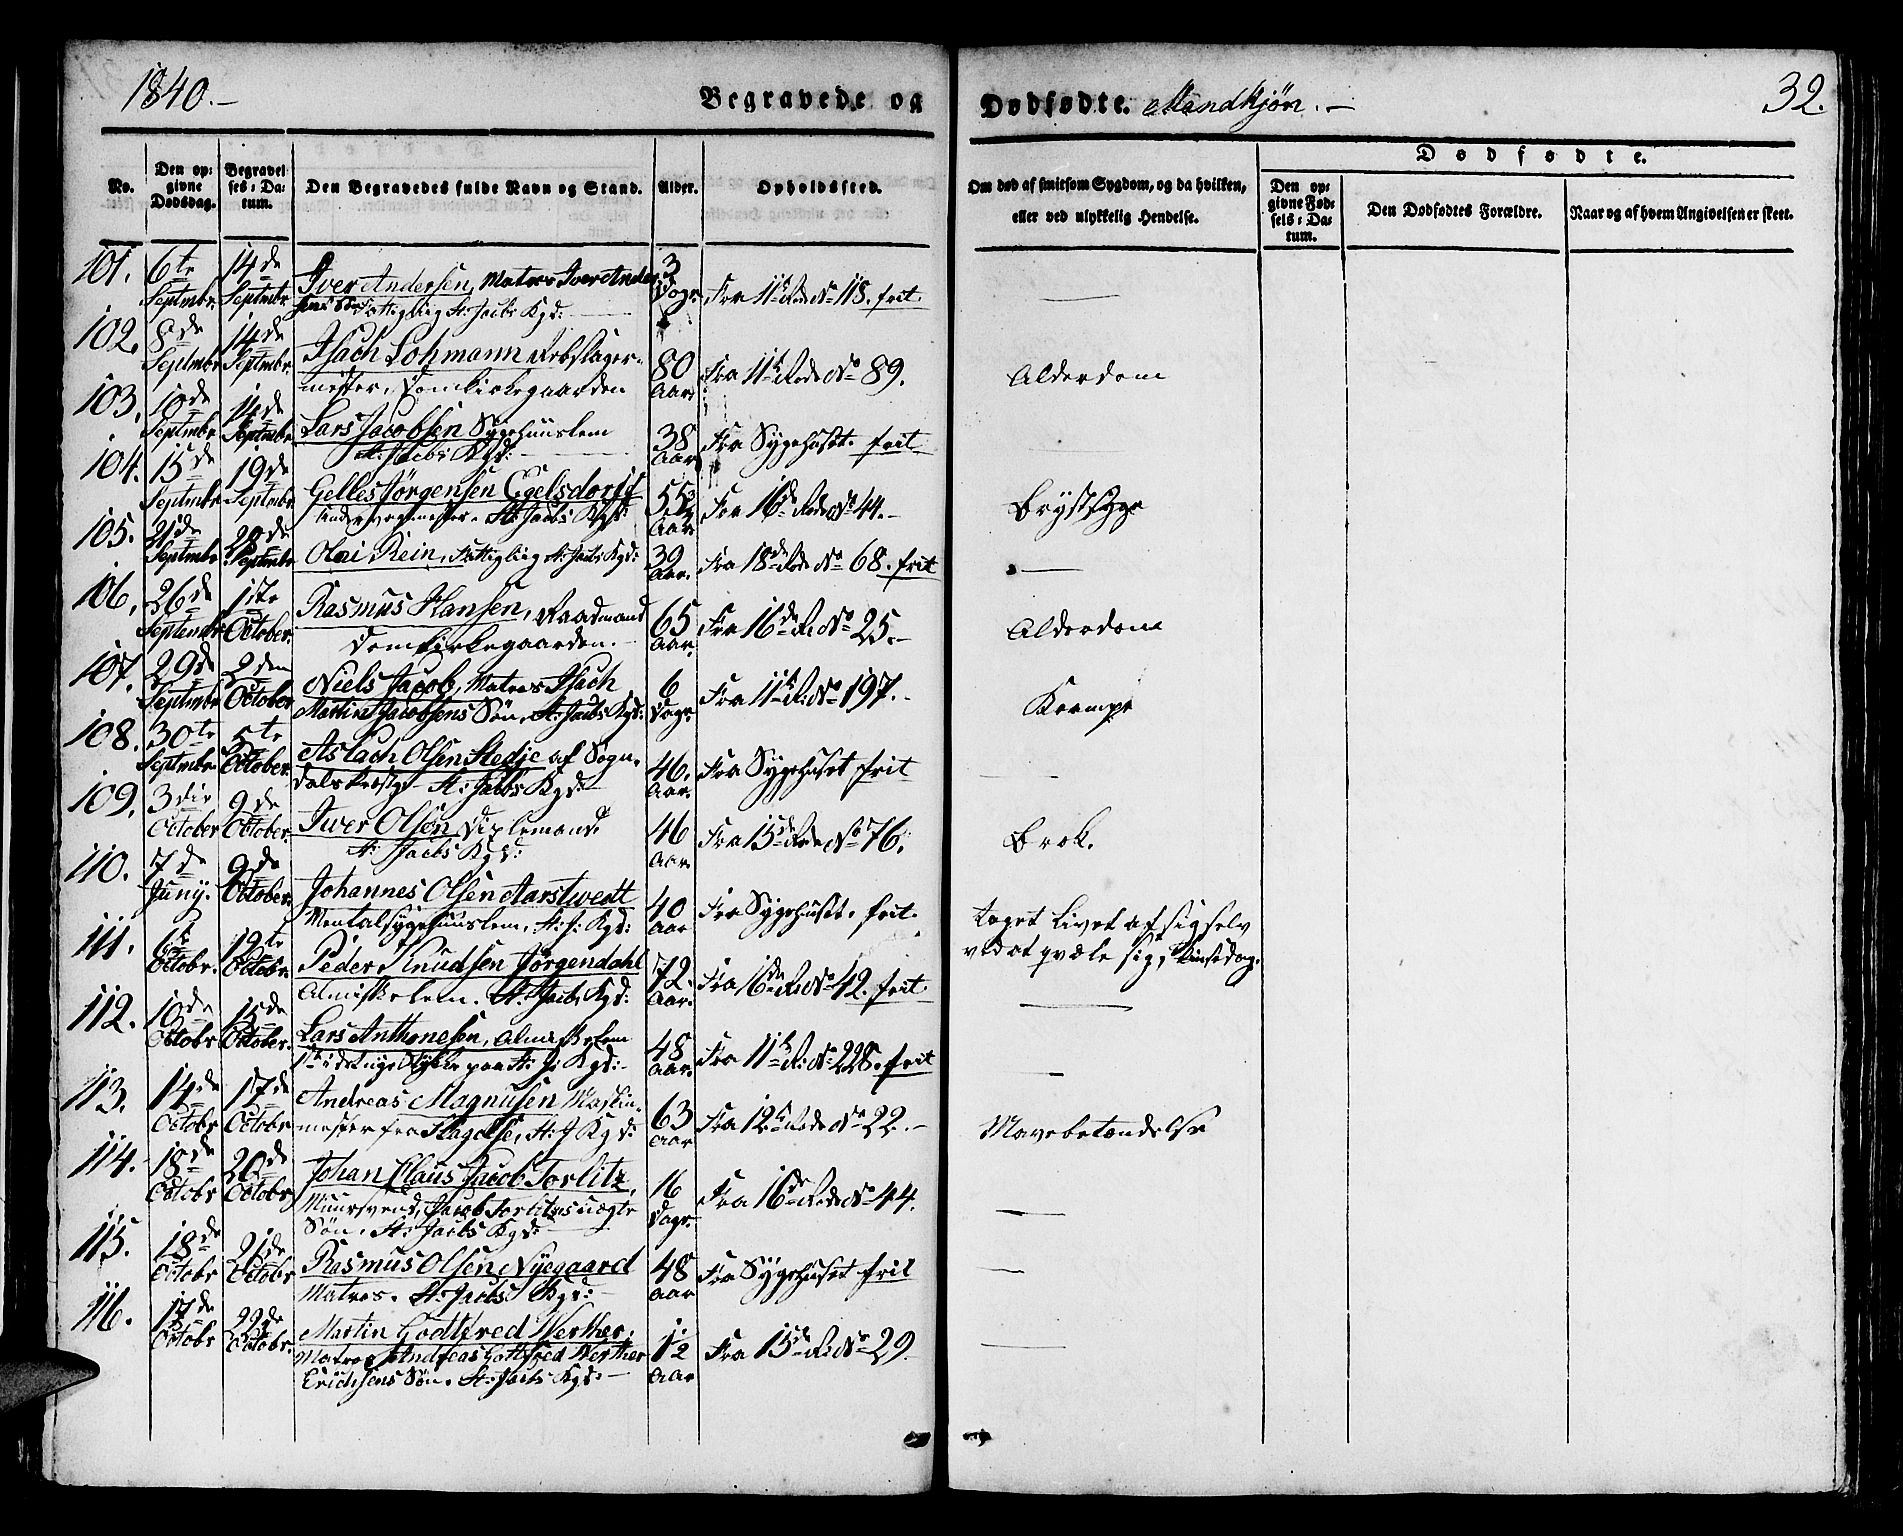 1840.–
Begravede og
Dødfødte. Mandkjøn.–
32.
No.
Den opgivne Dødsdag.
Begravelses-Datum.
Den Begravedes fulde Navn og Stand.
Alder.
Opholdssted.
Om død af smitsom Sygdom, og da hvilken,
eller ved ulykkelig Hendelse.
Dødfødte.
Den opgivne Fødsels-Datum.
Den Dødfødtes Forældre.
Naar og af hvem Angivelsen er skeet.
101. 6te Septmbr 14de Septmbr Iver Andersen, Matros Iver Ander-
sens Søn Fattiglig St: Jacobs Kgd: 3 Dage Fra 11te Rode No 118. frit.
102. 8de Septmbr 14de Septmbr Isach Lohmann Rebslager-
mester, Domkirkegaarden 80 Aar Fra 11te Rode No 89. Alderdom
103. 10de Septmbr 14de Septmbr Lars Jacobsen Sygehuuslem
St: Jacobs Kgd: 38 Aar Fra Sygehuset. frit
104. 15de Septmbr 19de Septmbr Gelles Jörgensen Egelsdorff
St: Jacobs Kgd: 55 Aar Fra 16de Rode No 44.– Brystsyge
105. 21de Septmbr 28de Septmbr Olai Rein, Fattiglig St: Jacobs Kgd: 39 Aar. Fra 18de Rode No 68. frit
106. 26de Septembr 1ste October. Rasmus Hansen, Raadmand
Domkirkegaarden. 65 Aar. Fra 16de R. No 25.– Alderdom
107. 29de Septmbr 2den October Niels Jacob, Matros Isach
Martin Jacobsens Søn, St: Jacobs Kgd: 6 Dage Fra 11te R: No 197.– Krampe
108. 30te Septmbr 5te October. Aslach Olsen Stedje af Sogn-
dals Præstgd St: Jacobs Kgd: 46. Aar. Fra Sygehuset frit
109. 3die October 9de October. Iwer Olsen Piplemand.
St: Jacobs Kgd: 46 Aar Fra 15de Rode No 76. Brok.
110. 7de Juny. 9de October. Johannes Olsen Aarstwedt
Mentalsygehuuslem, St: J: Kgd: 40 Aar Fra Sygehuset. frit. taget Livet af sig selv
ved at qvæle sig,
111. 6te Octobr. 12te Octobr. Peder Knudsen Jörgendahl
Almisselem. St: Jacobs Kgd: 72. Aar. Fra 16de R: No 42. frit
112. 10de Octobr 15de October. Lars Anthonesen, Almisselem
i det nye Stykke paa St: J: Kgd:– 48 Aar. Fra 11te R: No 228. frit
113. 14de Octobr 17de Octobr Andreas Magnusen Maskin-
mester fra Slagelse, St: J Kgd: 63 Aar Fra 12te Rode No 22.– Mavebetændelse
114. 18de Octobr 20de Octobr Johan Claus Jacob Torlitz,
Muursvend, Jacob Torlitzes uægte
Søn, St: Jacobs Kgd: 16 Dage Fra 16de Rode No 44.
115. 18de Octobr 21de Octobr Rasmus Olsen Nyegaard
Matros. St: Jacobs Kgd:– 48 Aar Fra Sygehuset frit
116. 17de Octobr 22de Octobr. Martin Godtfred Werther,
Matros Andreas Gottfred Werther
Erichsens Søn. St: Jacobs Kgd:– 1½ Aar Fra 15de R: No 29.